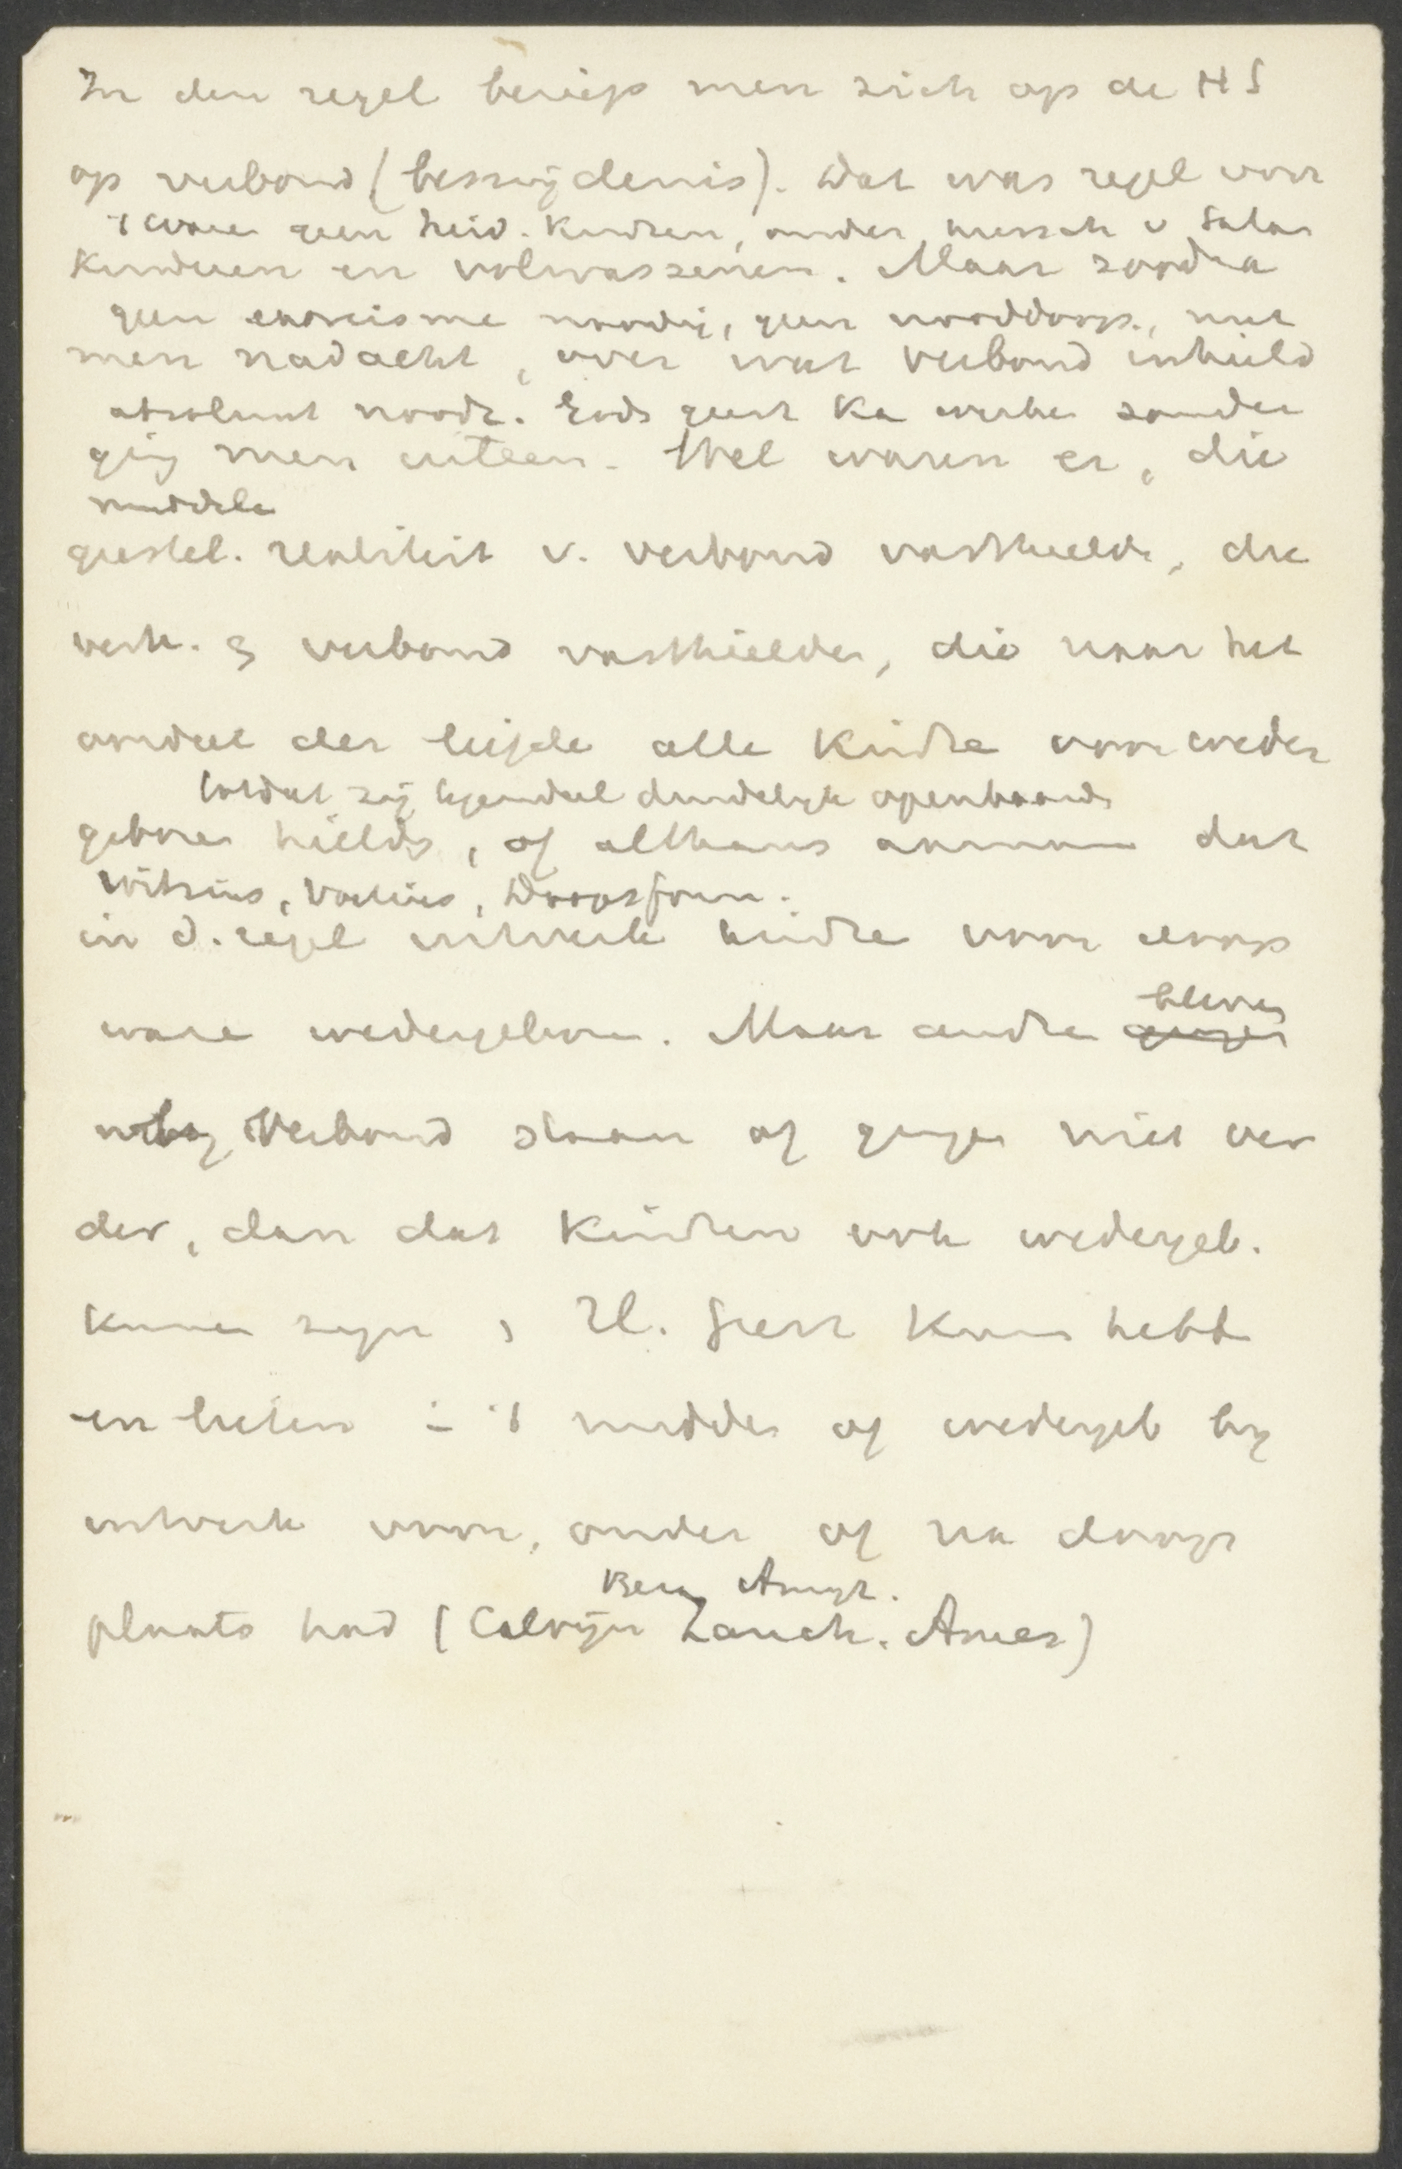 In den regel beriep men zich op de HS
op verbond (besnijdenis). Dat was regel voor
't ware geen heid. kindren, onder heersch v Satan
kinderen en volwassenen. Maar zoodra
geen exorcisme noodig, geen nooddoop, niet
men nadacht, over wat verbond inhield
absoluut noodz. Gods geest ka werken zonder
ging men uiteen. Wel waren er, die
middelen
geestel. realiteit v. verbond vasthielde, die
verk. & verbond vasthielden, die naar het
oordeel der liefde alle kindre voor weder
totdat zij tegendeel duidelijk openbaard
geboren hielde, of althans aannamen dat
Witsius, Voetius, Doopsform.
in d. regel uitverk kindre voor doop
ware wedergeboren. Maar andre bleven
by Verbond staan of gingen niet ver
der, dan dat kindren ook wedergeb.
kunnen zijn, H. Geest kunn hebbe
en lieten in 't midden of wedergeb by
uitverk voor, onder of na doop
Beza Amyr.
plaats had (Calvijn Zanch. Ames)